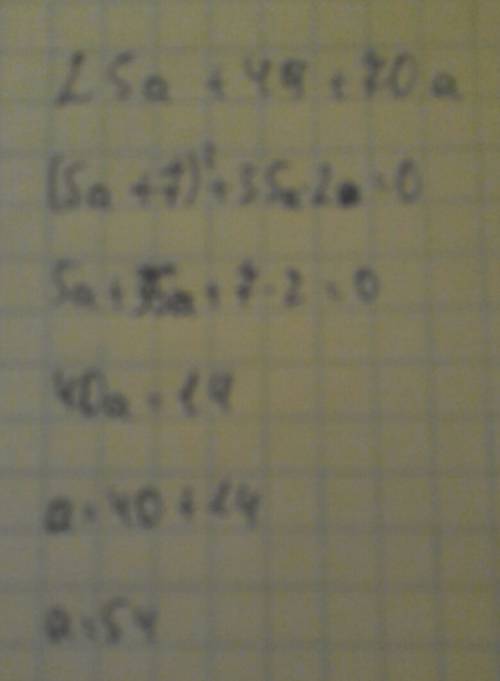 25a + 49 + 70a
(5a + 7)² + 35a · 2 = 0
5a + 35a + 7 · 2 = 0
40a = 14
a = 40 + 14
a = 54